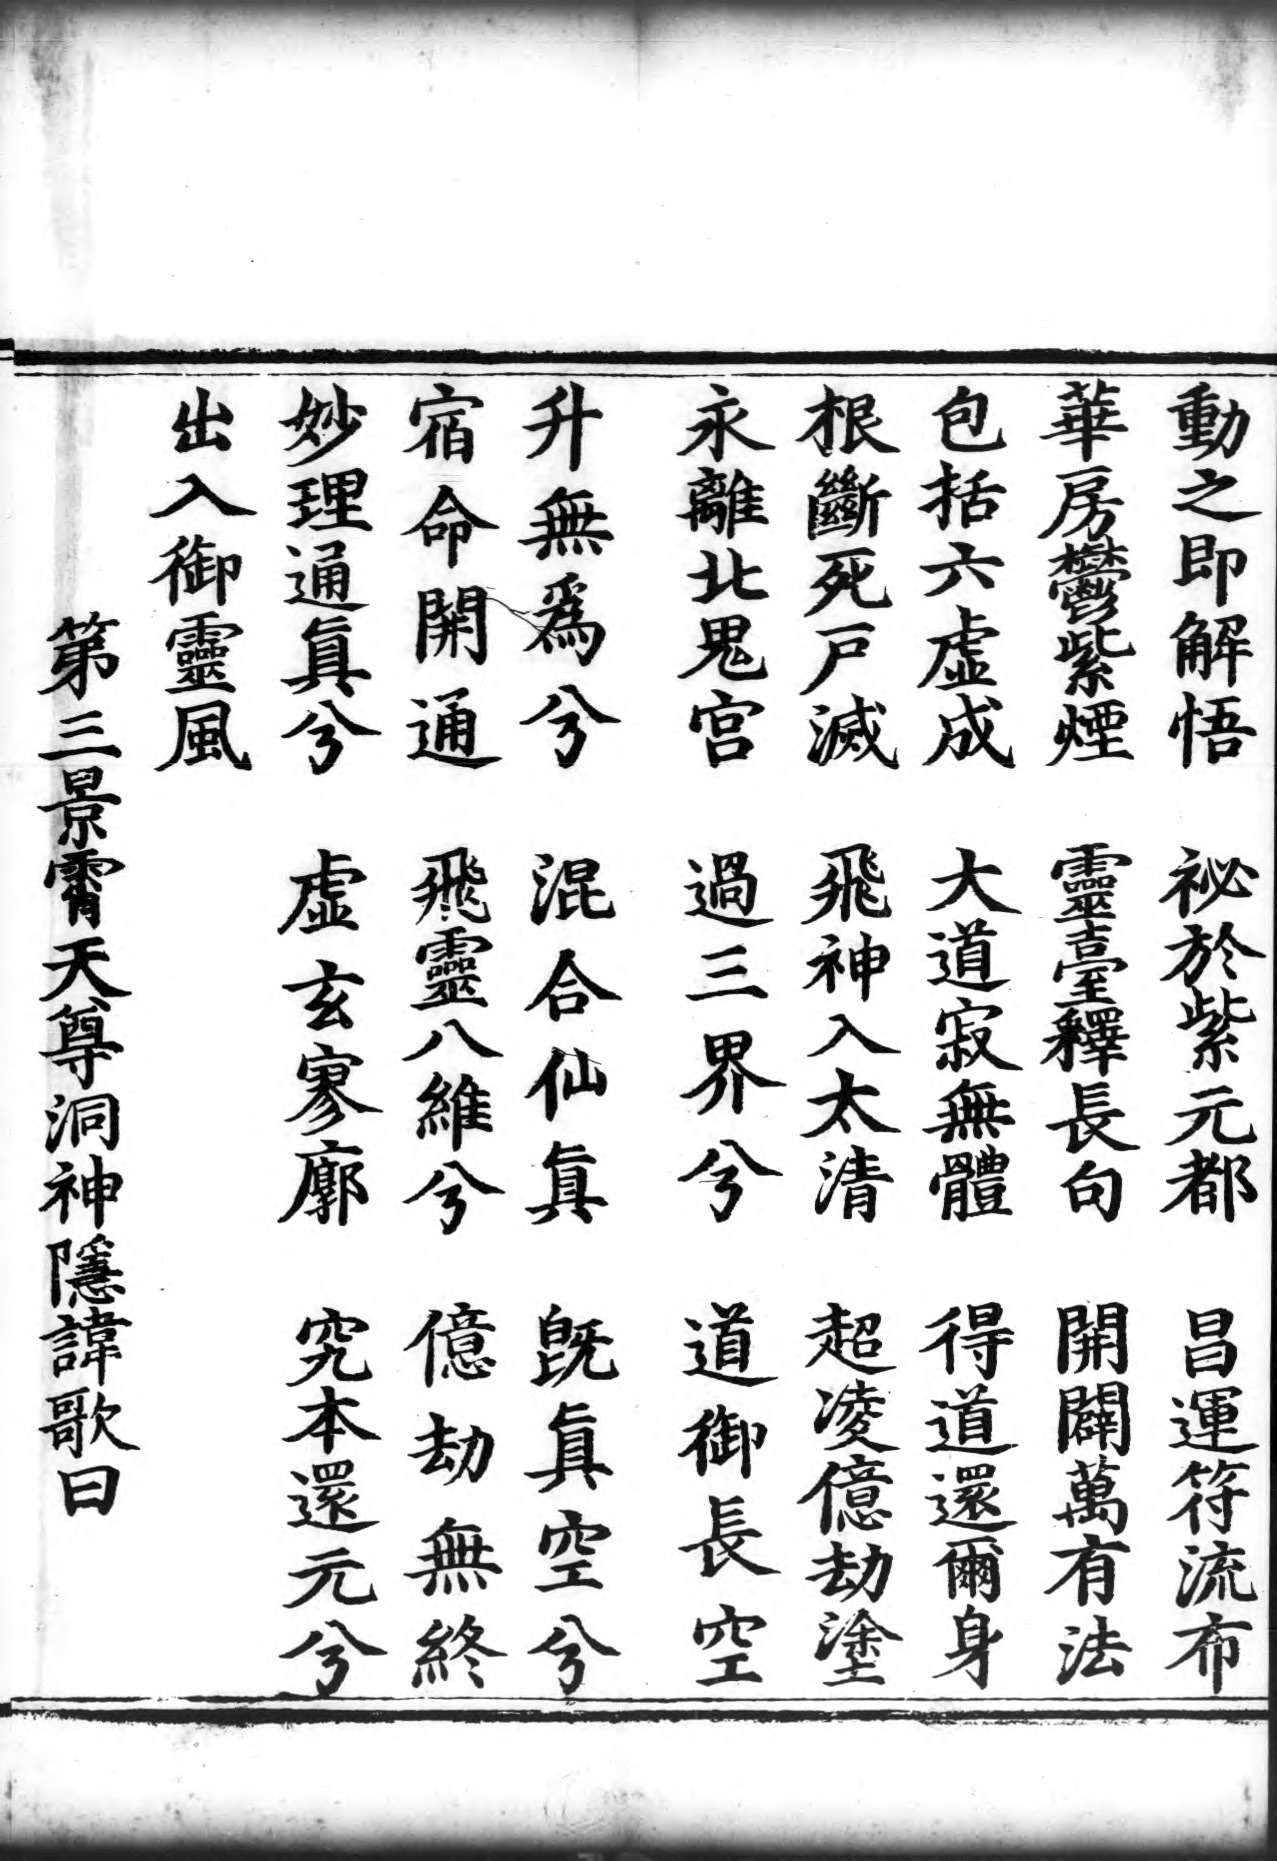 動之即解悟　祕於紫元都　昌運符流布
華房鬱紫煙　靈臺釋長句　開闢萬有法
包括六虛成　大道寂無體　得道還爾身
根斷死戸滅　飛神入太清　超凌億劫塗
永離北鬼宮　過三界兮　道御長空
升無為兮　混合仙眞　既眞空兮
宿命開通　飛靈八維兮　億劫無終
妙理通眞兮　虛玄寥廓　究本還元兮
出入御靈風
第三景霄天尊洞神隱諱歌曰